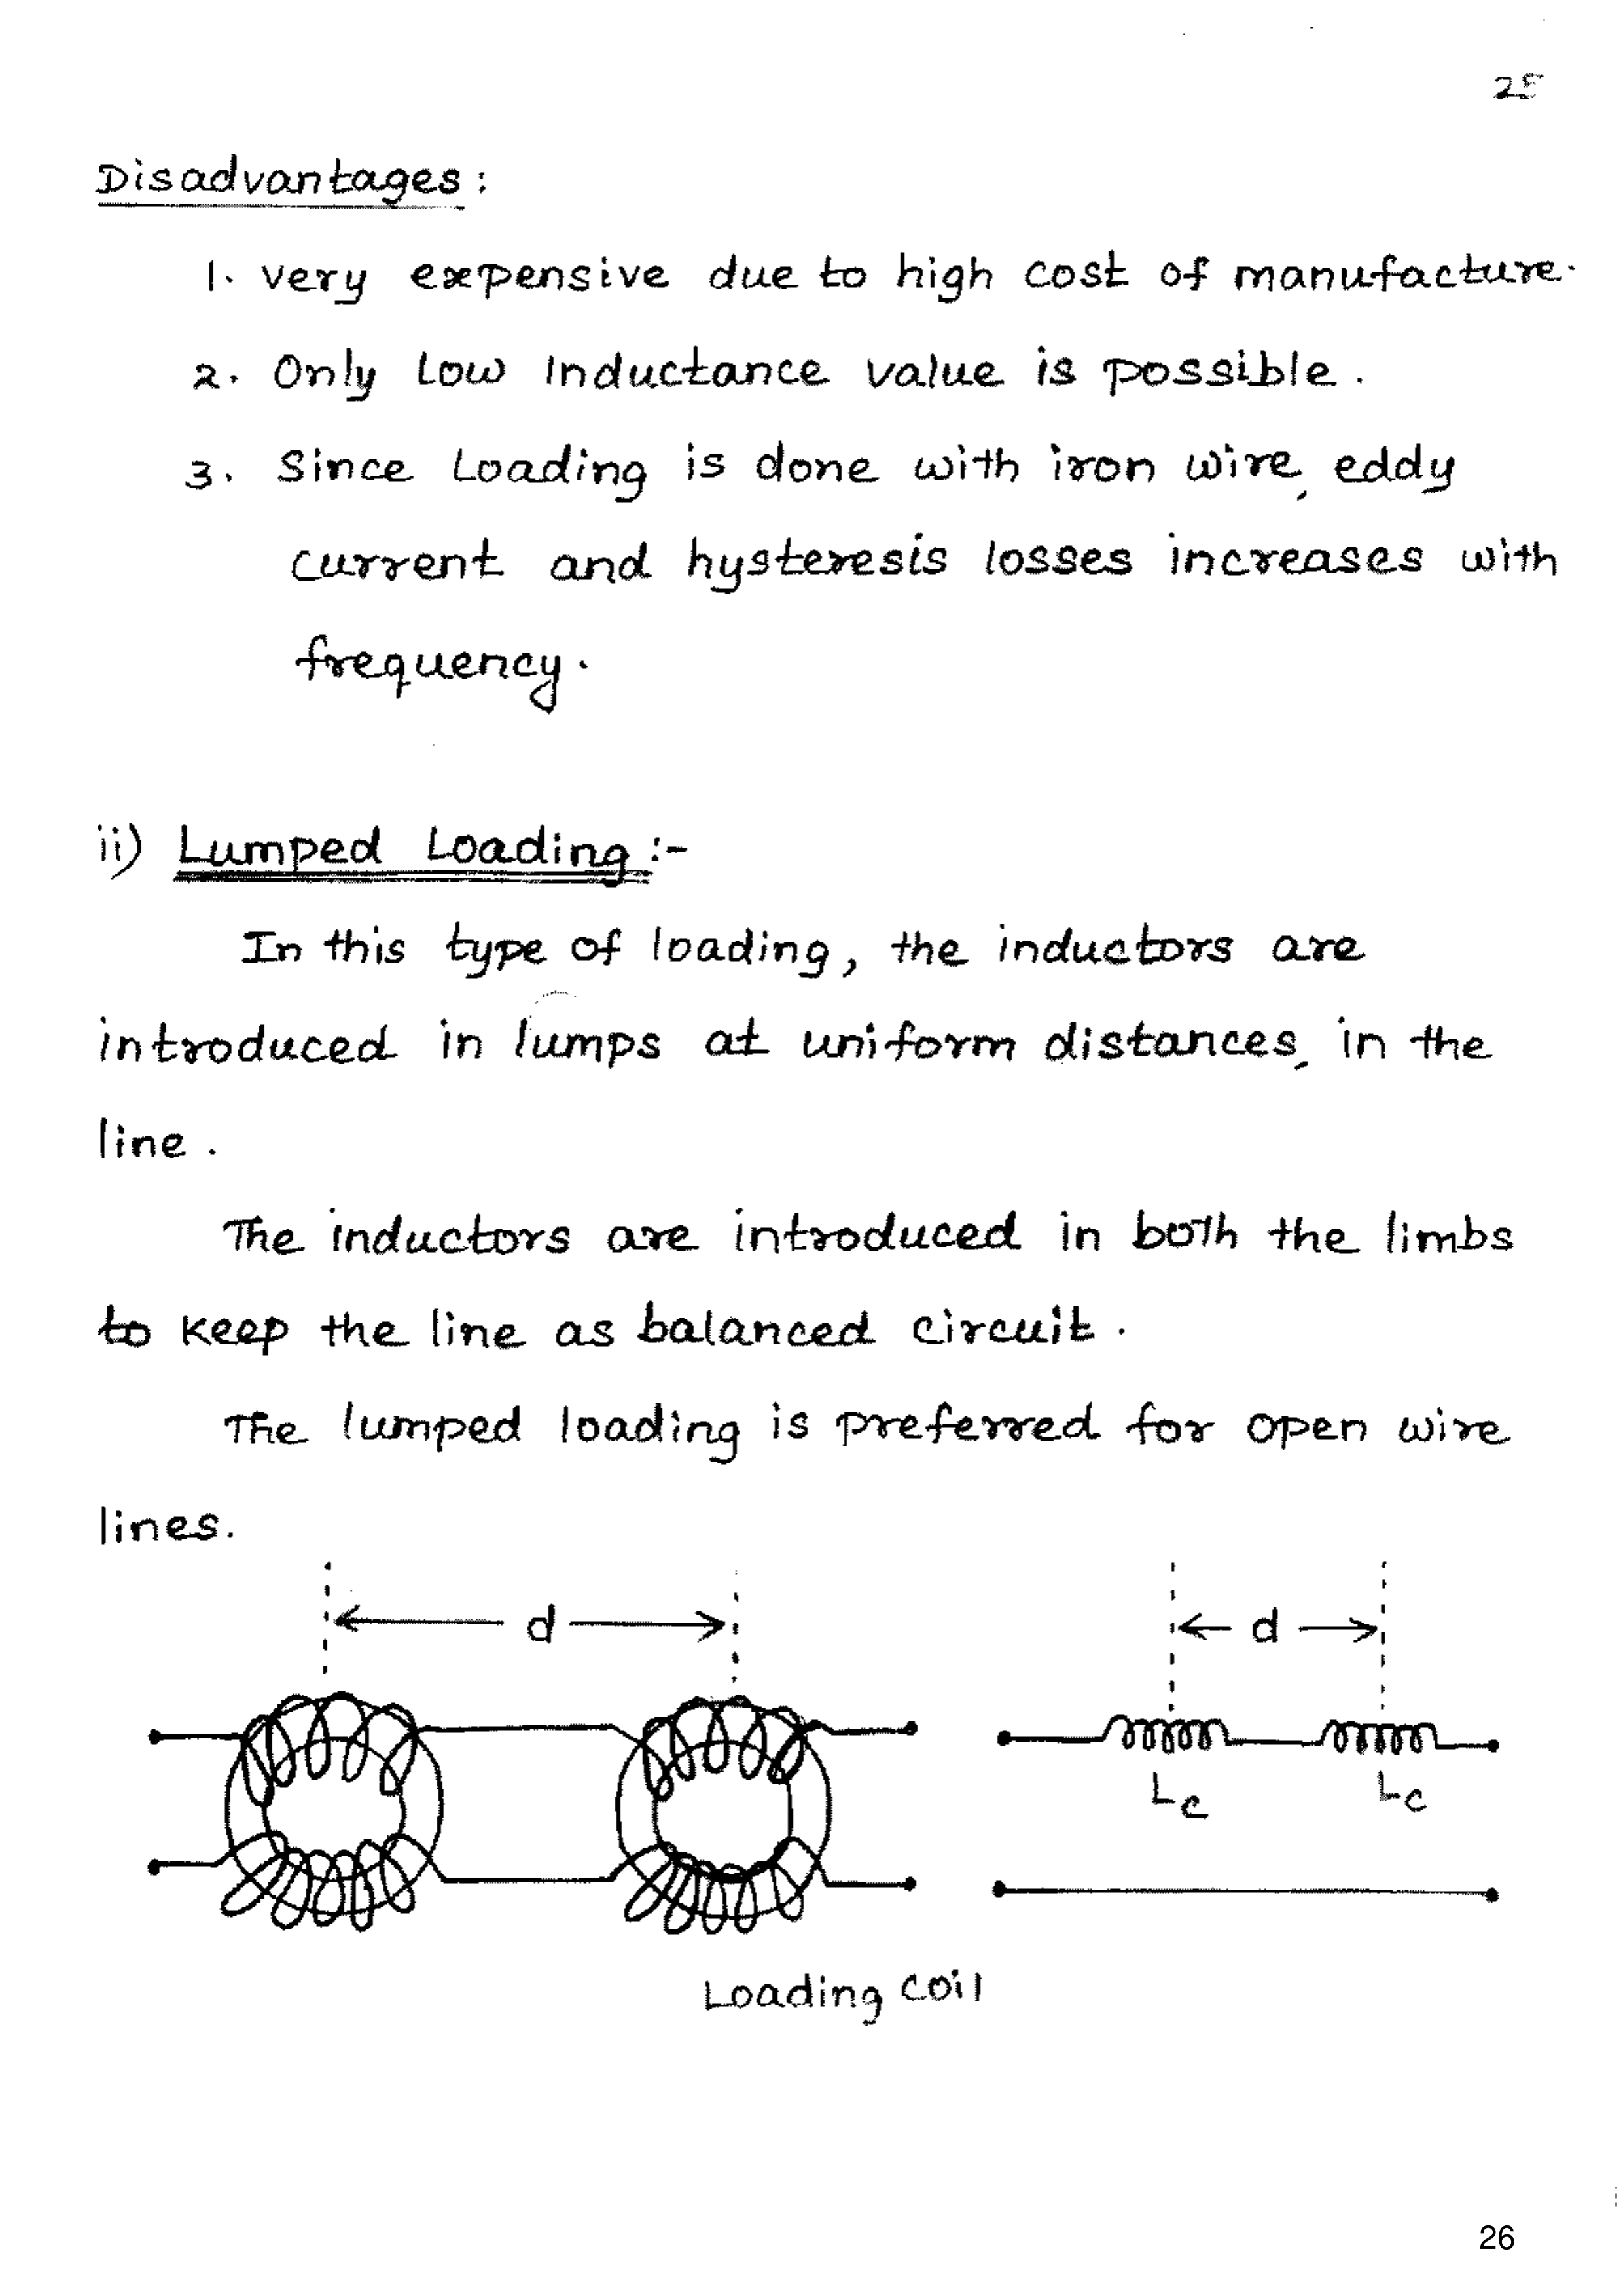 25
Disadvantages :
1. very expensive due to high cost of manufacture.
2. Only Low Inductance value is possible.
3. Since Loading is done with iron wire, eddy
current and hysteresis losses increases with
frequency.
ii) Lumped Loading :-
In this type of loading, the inductors are
introduced in lumps at uniform distances, in the
line.
The inductors are introduced in both the limbs
to keep the line as balanced circuit.
The lumped loading is preferred for open wire
lines.
d d
Lc Lc
Loading coil
26